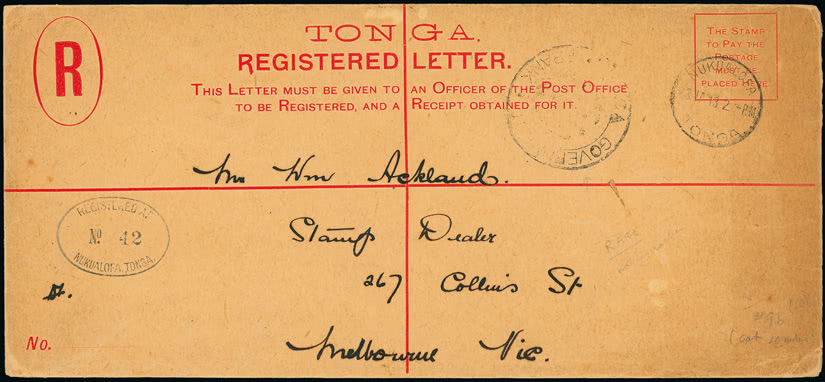 TONGA.
REGISTERED LETTER.
THIS LETTER MUST BE GIVEN TO AN OFFICER OF THE POST OFFICE
TO BE REGISTERED, AND A RECEIPT OBTAINED FOR IT.
R
THE STAMP
TO PAY THE
POSTAGE
MUST BE
PLACED HERE
NUKUALOFA
2 - PM
TONGA
Mr Wm Ackland.
Stamp Dealer
267 Collins St
Melbourne Vic.
REGISTERED AT
No 42
NUKUALOFA, TONGA.
No.